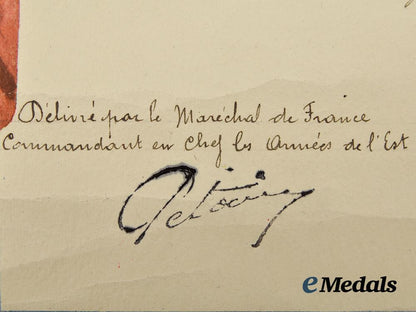 Délivré par le Maréchal de France
Commandant en Chef les Armées de l'Est
Pétain
eMedals